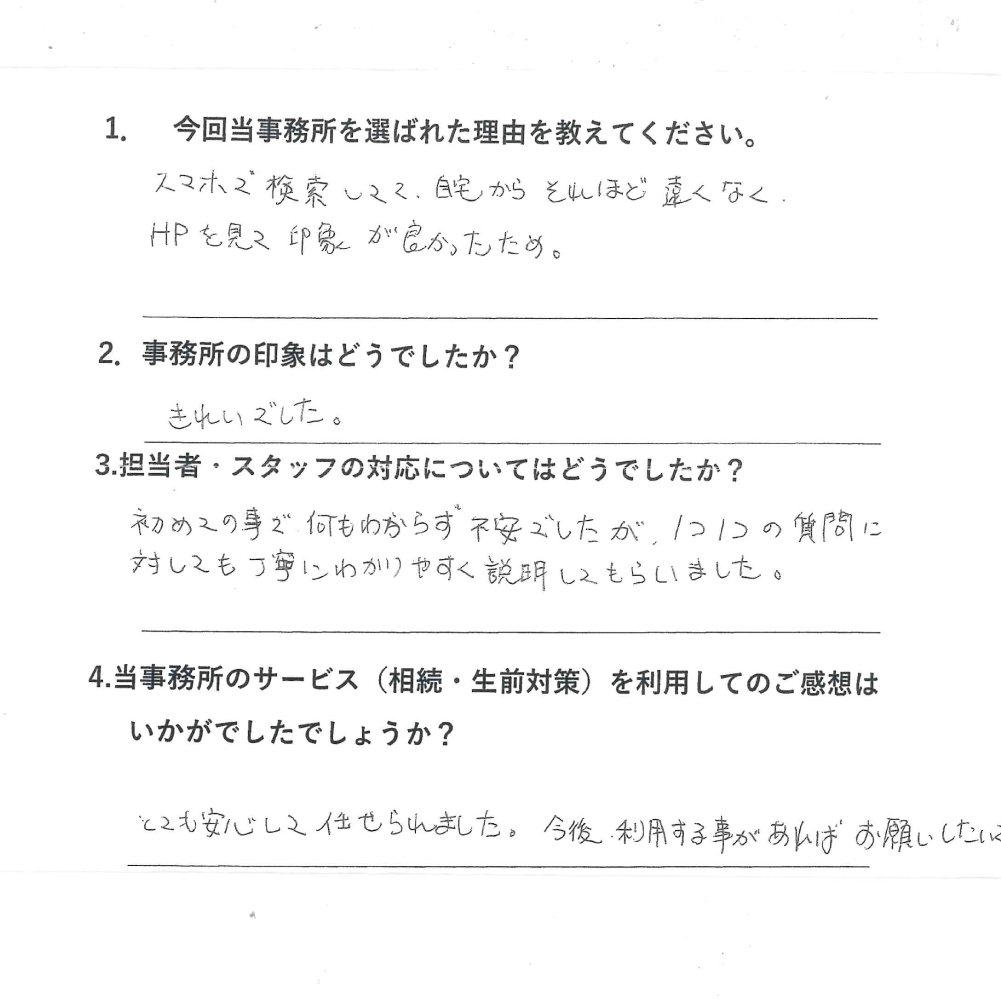 1. 今回当事務所を選ばれた理由を教えてください。
スマホで検索してて、自宅からそれほど遠くなく、
HPを見て印象が良かったため。
2. 事務所の印象はどうでしたか？
きれいでした。
3.担当者・スタッフの対応についてはどうでしたか？
初めての事で何もわからず不安でしたが、1つ1つの質問に
対しても丁寧にわかりやすく説明してもらいました。
4.当事務所のサービス（相続・生前対策）を利用してのご感想は
いかがでしたでしょうか？
とても安心して任せられました。今後、利用する事があればお願いしたい